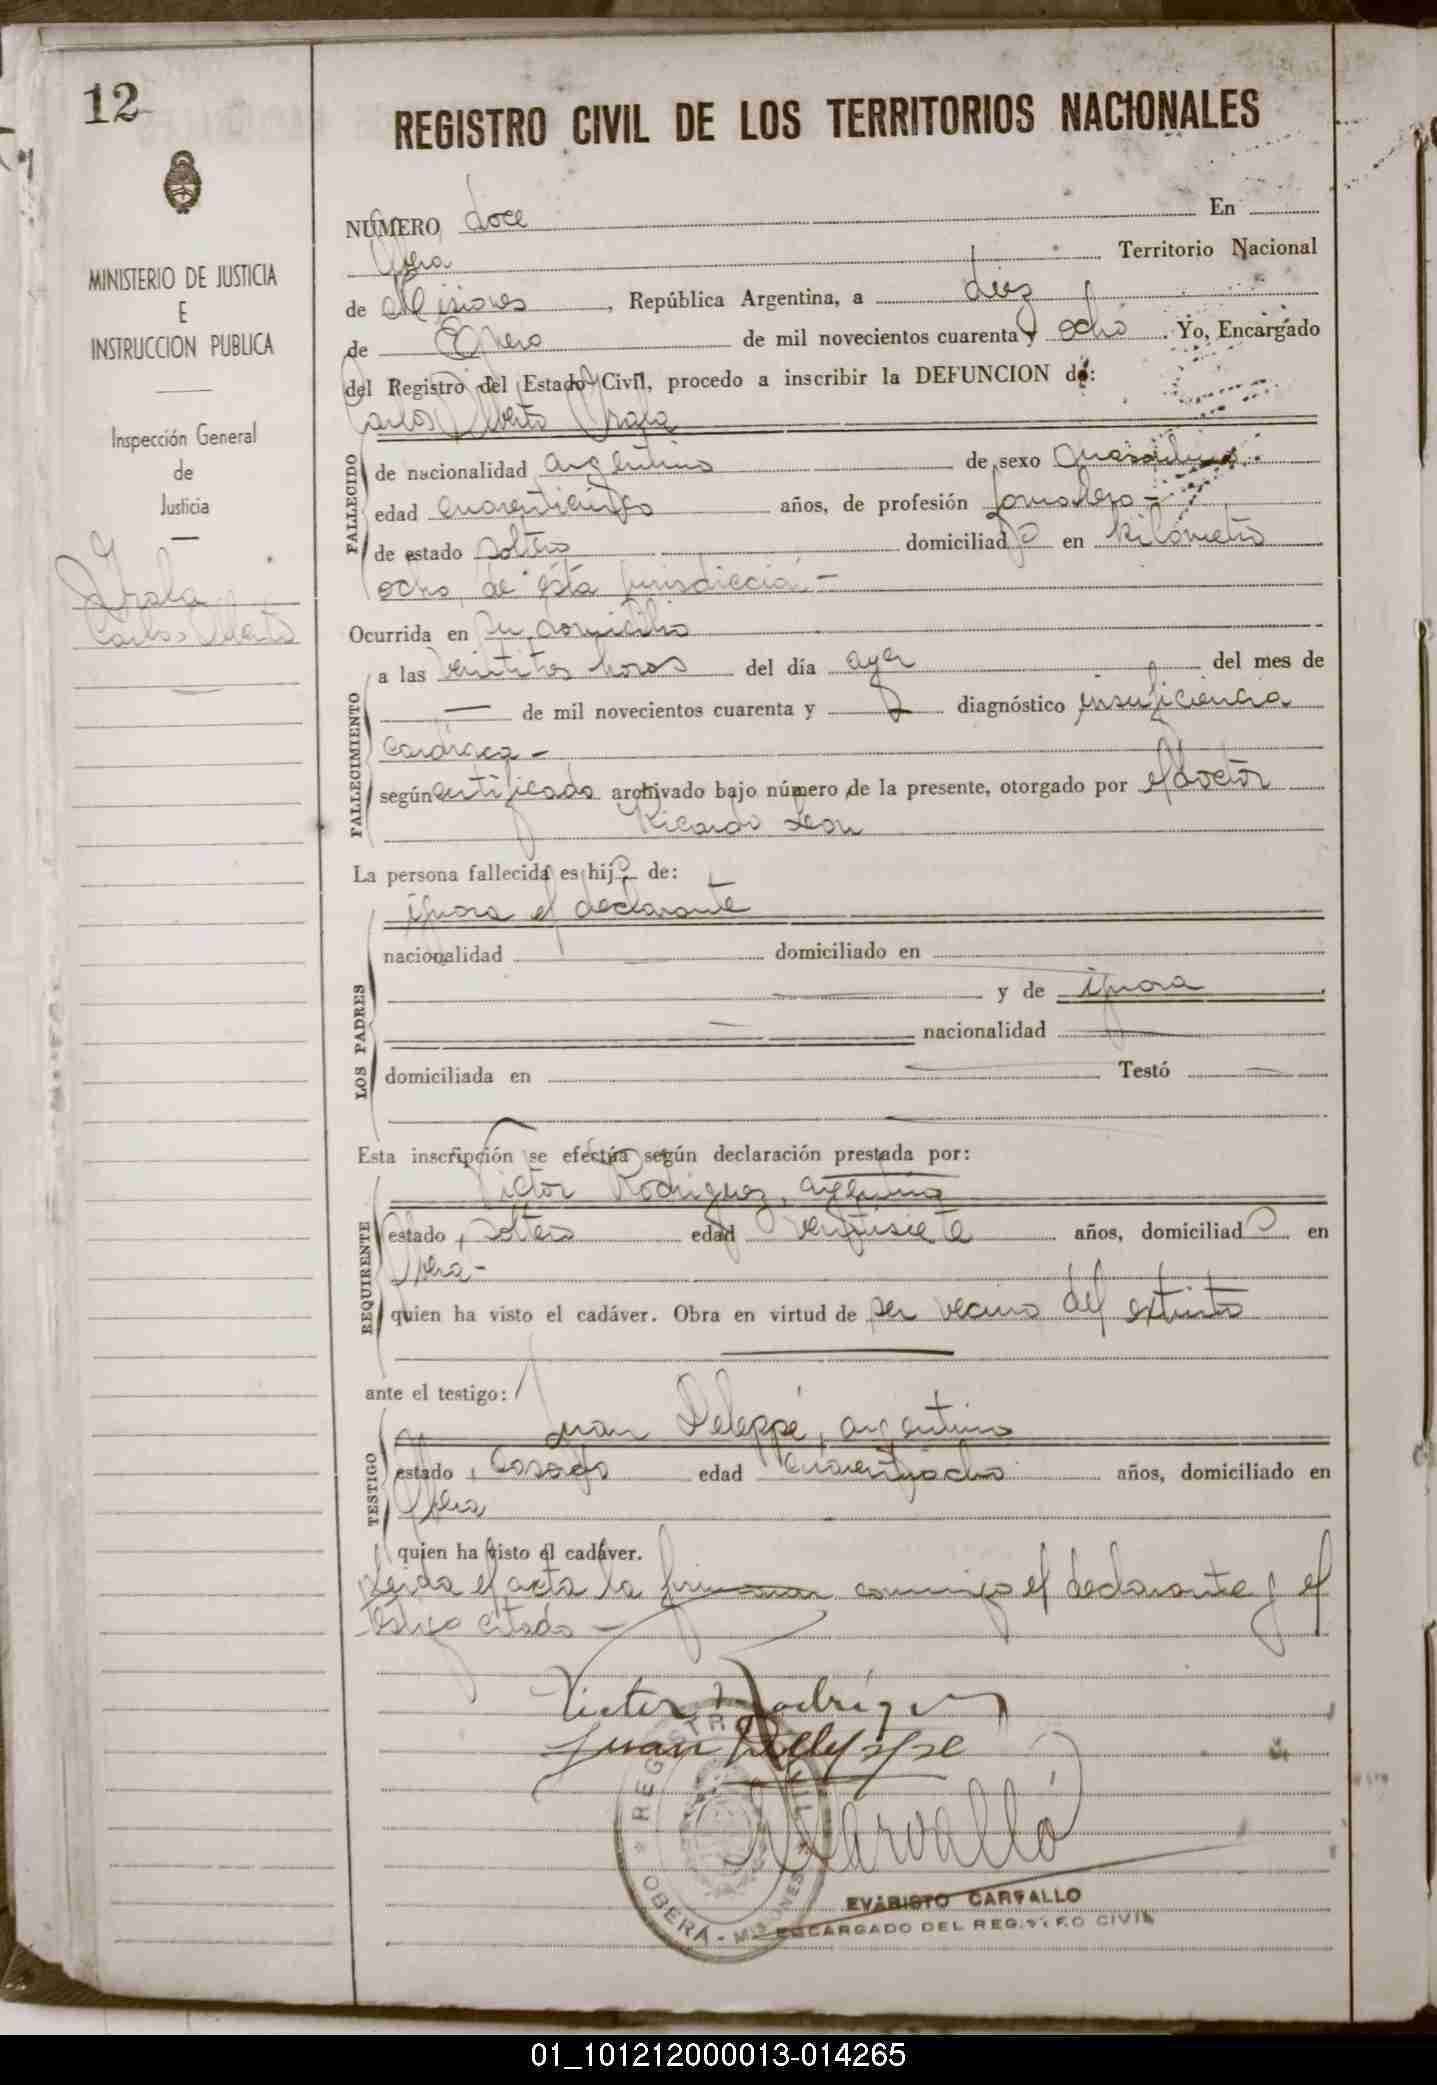 12
REGISTRO CIVIL DE LOS TERRITORIOS NACIONALES
MINISTERIO DE JUSTICIA
E
INSTRUCCION PUBLICA
Inspección General
de
Justicia
Irala
Carlos Alberto
NÚMERO doce En
Obera Territorio Nacional
de Misiones, República Argentina, a diez
de Enero de mil novecientos cuarenta y ocho. Yo, Encargado
del Registro del Estado Civil, procedo a inscribir la DEFUNCION de:
Carlos Alberto Irala
FALLECIDO
de nacionalidad argentina de sexo masculino.-
edad años, de profesión jornalero-
de estado soltero domiciliado en kilómetro
ocho, de ésta jurisdicción.-
Ocurrida en su domicilio
FALLECIMIENTO
a las horas del día ayer del mes de
— de mil novecientos cuarenta y diagnóstico insuficiencia
cardíaca-
según certificado archivado bajo número de la presente, otorgado por el doctor
Ricardo Leon
La persona fallecida es hijo de:
LOS PADRES
ignora el declarante
nacionalidad domiciliado en
y de ignora
nacionalidad
domiciliada en Testó
Esta inscripción se efectúa según declaración prestada por:
REQUIRENTE
Victor Rodriguez, argentino
estado, soltero edad veintisiete años, domiciliado en
Obera-
quien ha visto el cadáver. Obra en virtud de ser vecino del extinto
ante el testigo:
TESTIGO
Juan Deleppe, argentino
estado, casado edad cuarentiocho años, domiciliado en
Obera
quien ha visto el cadáver.
Leida el acta la firman conmigo el declarante y el
testigo citado-
Victor Rodríguez
Juan Deleppe
Carvalló
REGISTRO CIVIL
OBERÁ - MISIONES
EVARISTO CARVALLO
ENCARGADO DEL REGISTRO CIVIL
01_101212000013-014265